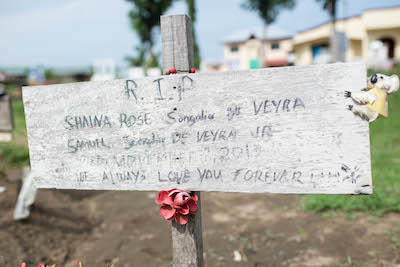 R I P
SHAINA ROSE Songalia de VEYRA
SAMUEL DE VEYRA JR
NOVEMBER 2013
WE ALWAYS LOVE YOU FOREVER